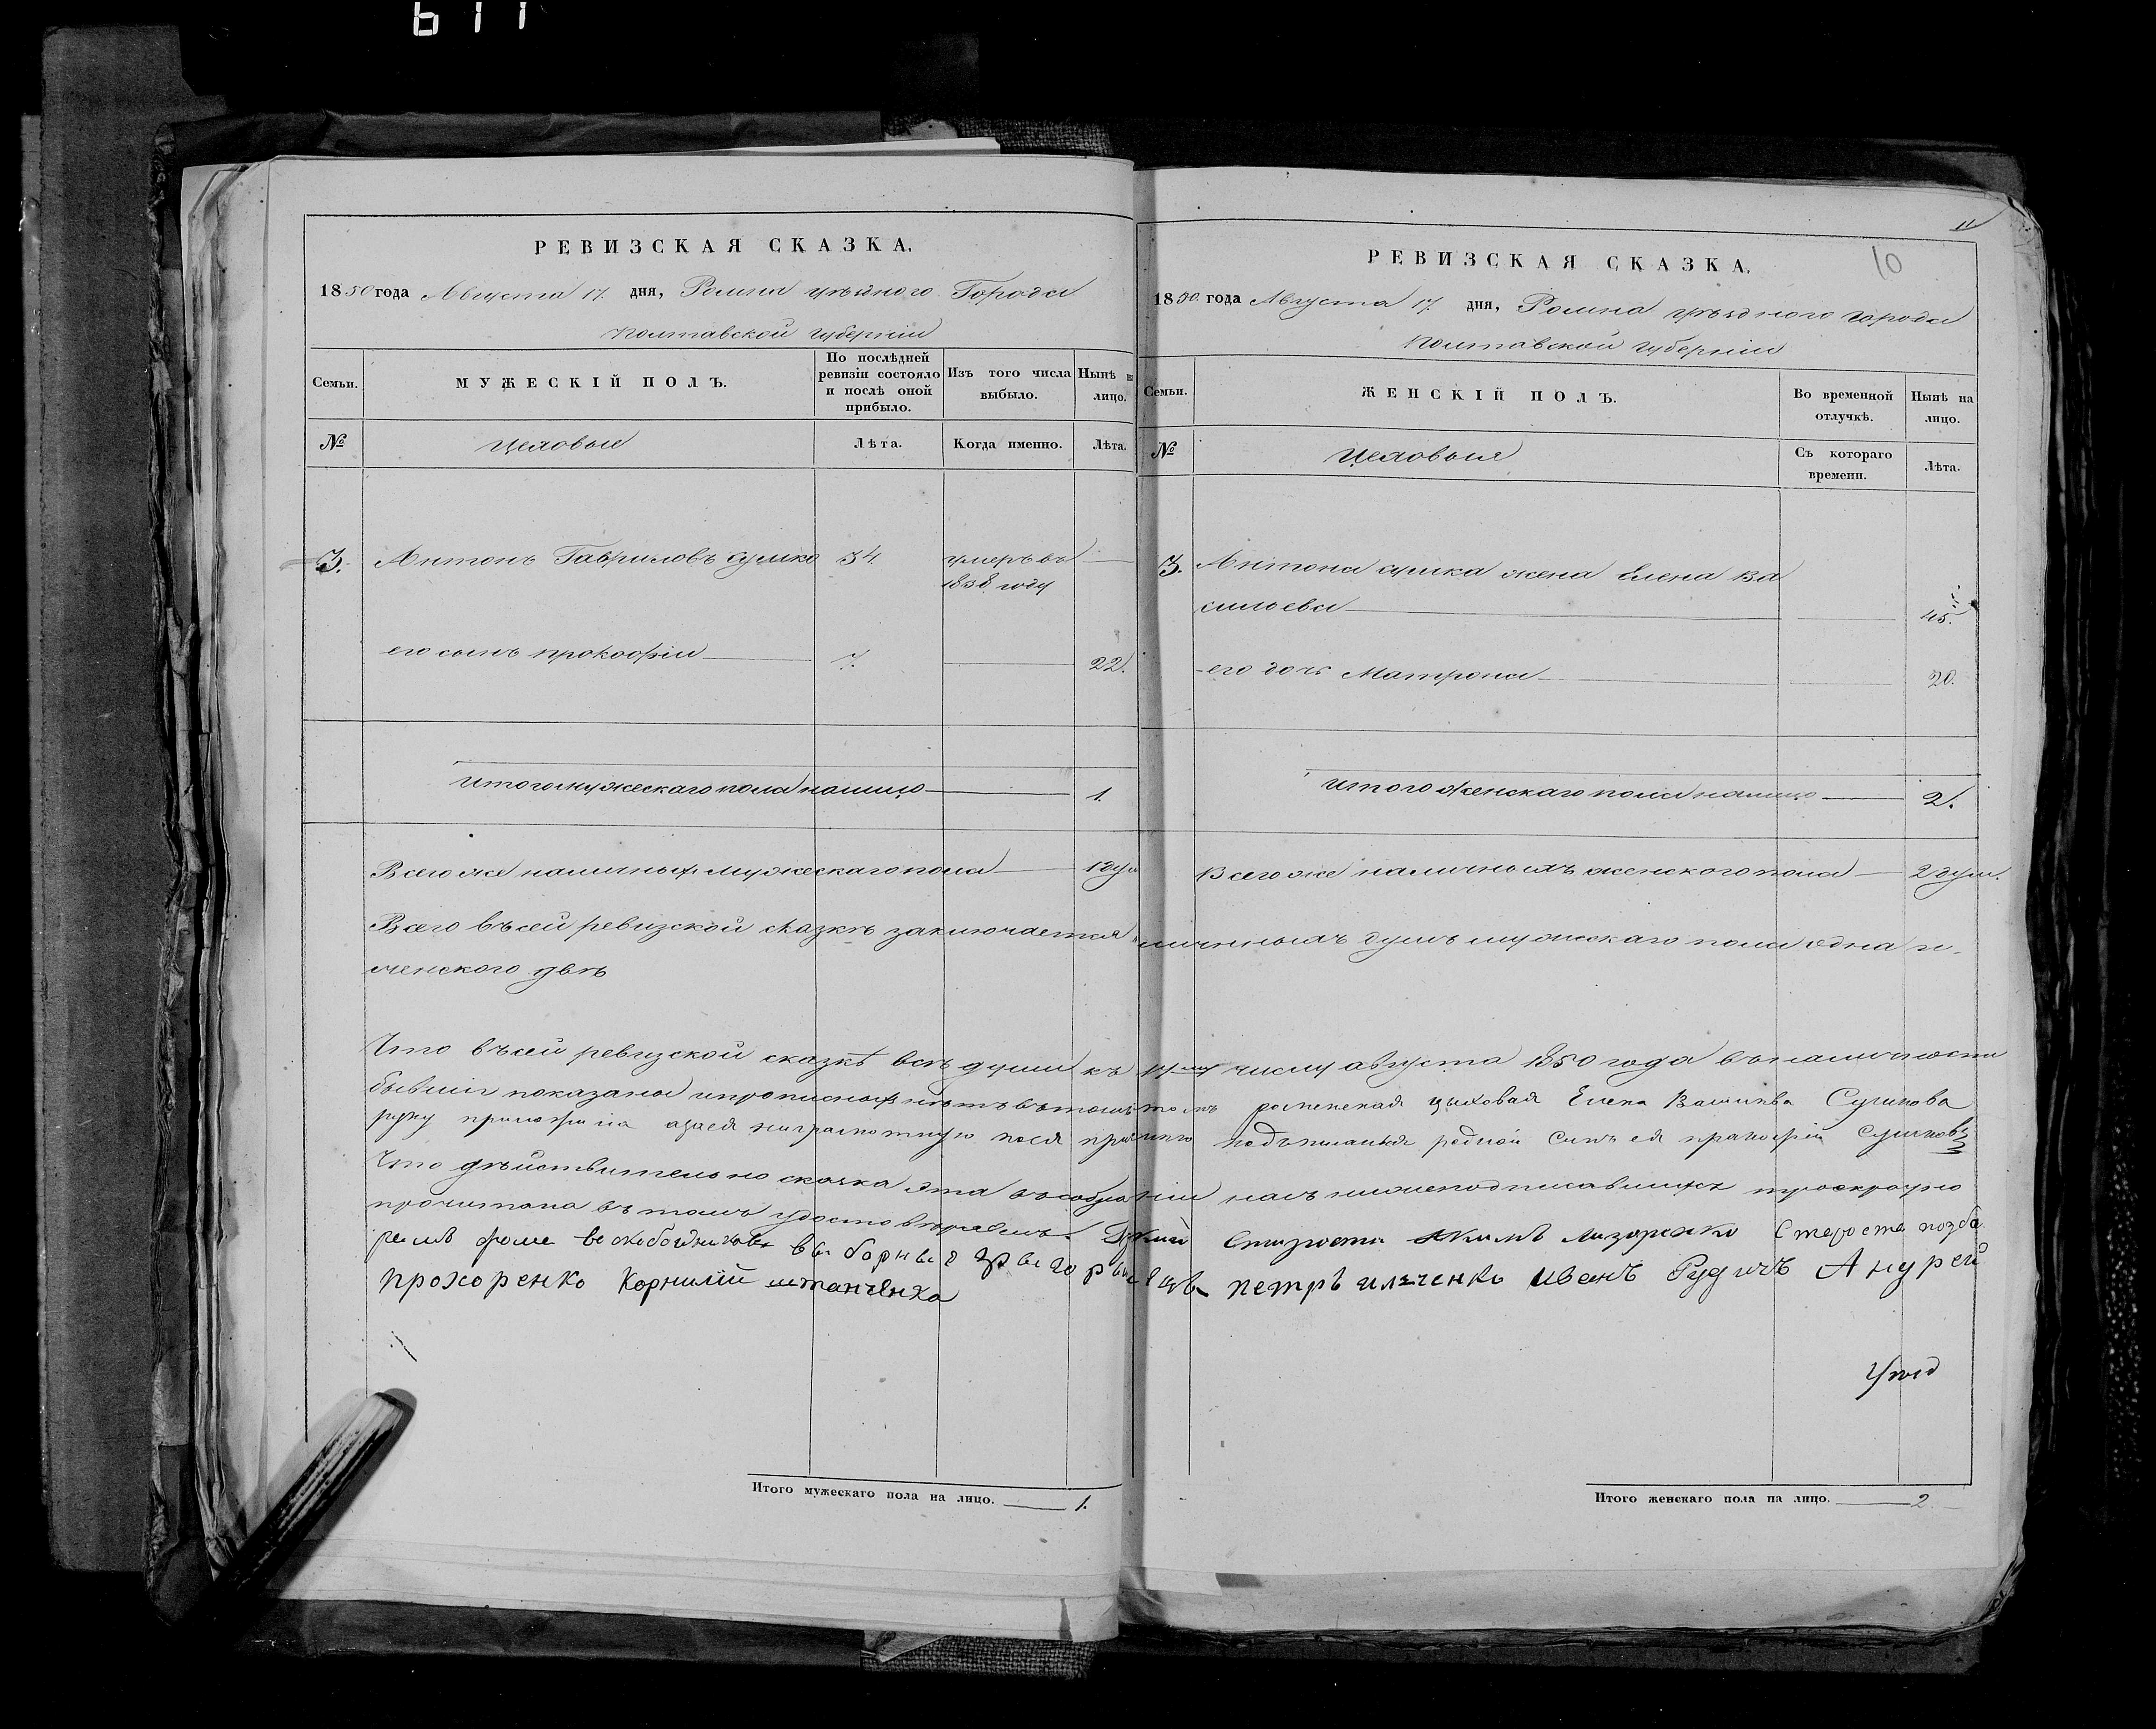 611
РЕВИЗСКАЯ СКАЗКА.
1850 года Августа 17. дня, Ромна уѣзднаго Города
Полтавской губернии
Семьи.
МУЖЕСКІЙ ПОЛЪ.
По послѣдней ревизіи состояло и послѣ оной прибыло.
Изъ того числа выбыло.
Нынѣ на лицо.
№
Цеховые
Лѣта.
Когда именно.
Лѣта.
3. Антонъ Гавриловъ Сушко 34. умеръ въ
1838 году
его сынъ прокофіи 7. 22.
Итого мужескаго пола налицо 1.
Всего же наличныхъ мужескаго пола 1 душ
11
10
РЕВИЗСКАЯ СКАЗКА.
1850. года Августа 17. дня, Ромна уѣзднаго города
Полтавской губерніи
Семьи.
ЖЕНСКІЙ ПОЛЪ.
Во временной отлучкѣ.
Нынѣ на лицо.
№
Цеховыя
Съ котораго времени.
Лѣта.
3. Антона сушка жена Елена Ва
сильева 45.
его дочь Матрона 20.
Итого женскаго пола налицо 2.
Всего же наличныхъ женского пола 2 душ.
Всего въ сей ревизской сказкѣ заключается наличныхъ душъ мужескаго пола одна и
женского двѣ
Что въ сей ревизской сказкѣ всѣ души къ 17му числу августа 1850 года въ наличности
бывшіе показаны и прописныхъ нѣтъ въ томъ роменская цеховая Елена Сушкова
руку приложила а за ея неграмотную родной Синъ ея прокофій Сушковъ
Что дѣйствительно сказка эта въ собраніи насъ нижеподписавшихся троекратно
прочитана въ томъ удостовѣряемъ. Староста Старости
фома выборные петръ иляченко иванъ Рудичъ Андрей
прохоренко Корнилій
Итого мужескаго пола на лицо. 1.
Итого женскаго пола на лицо. 2